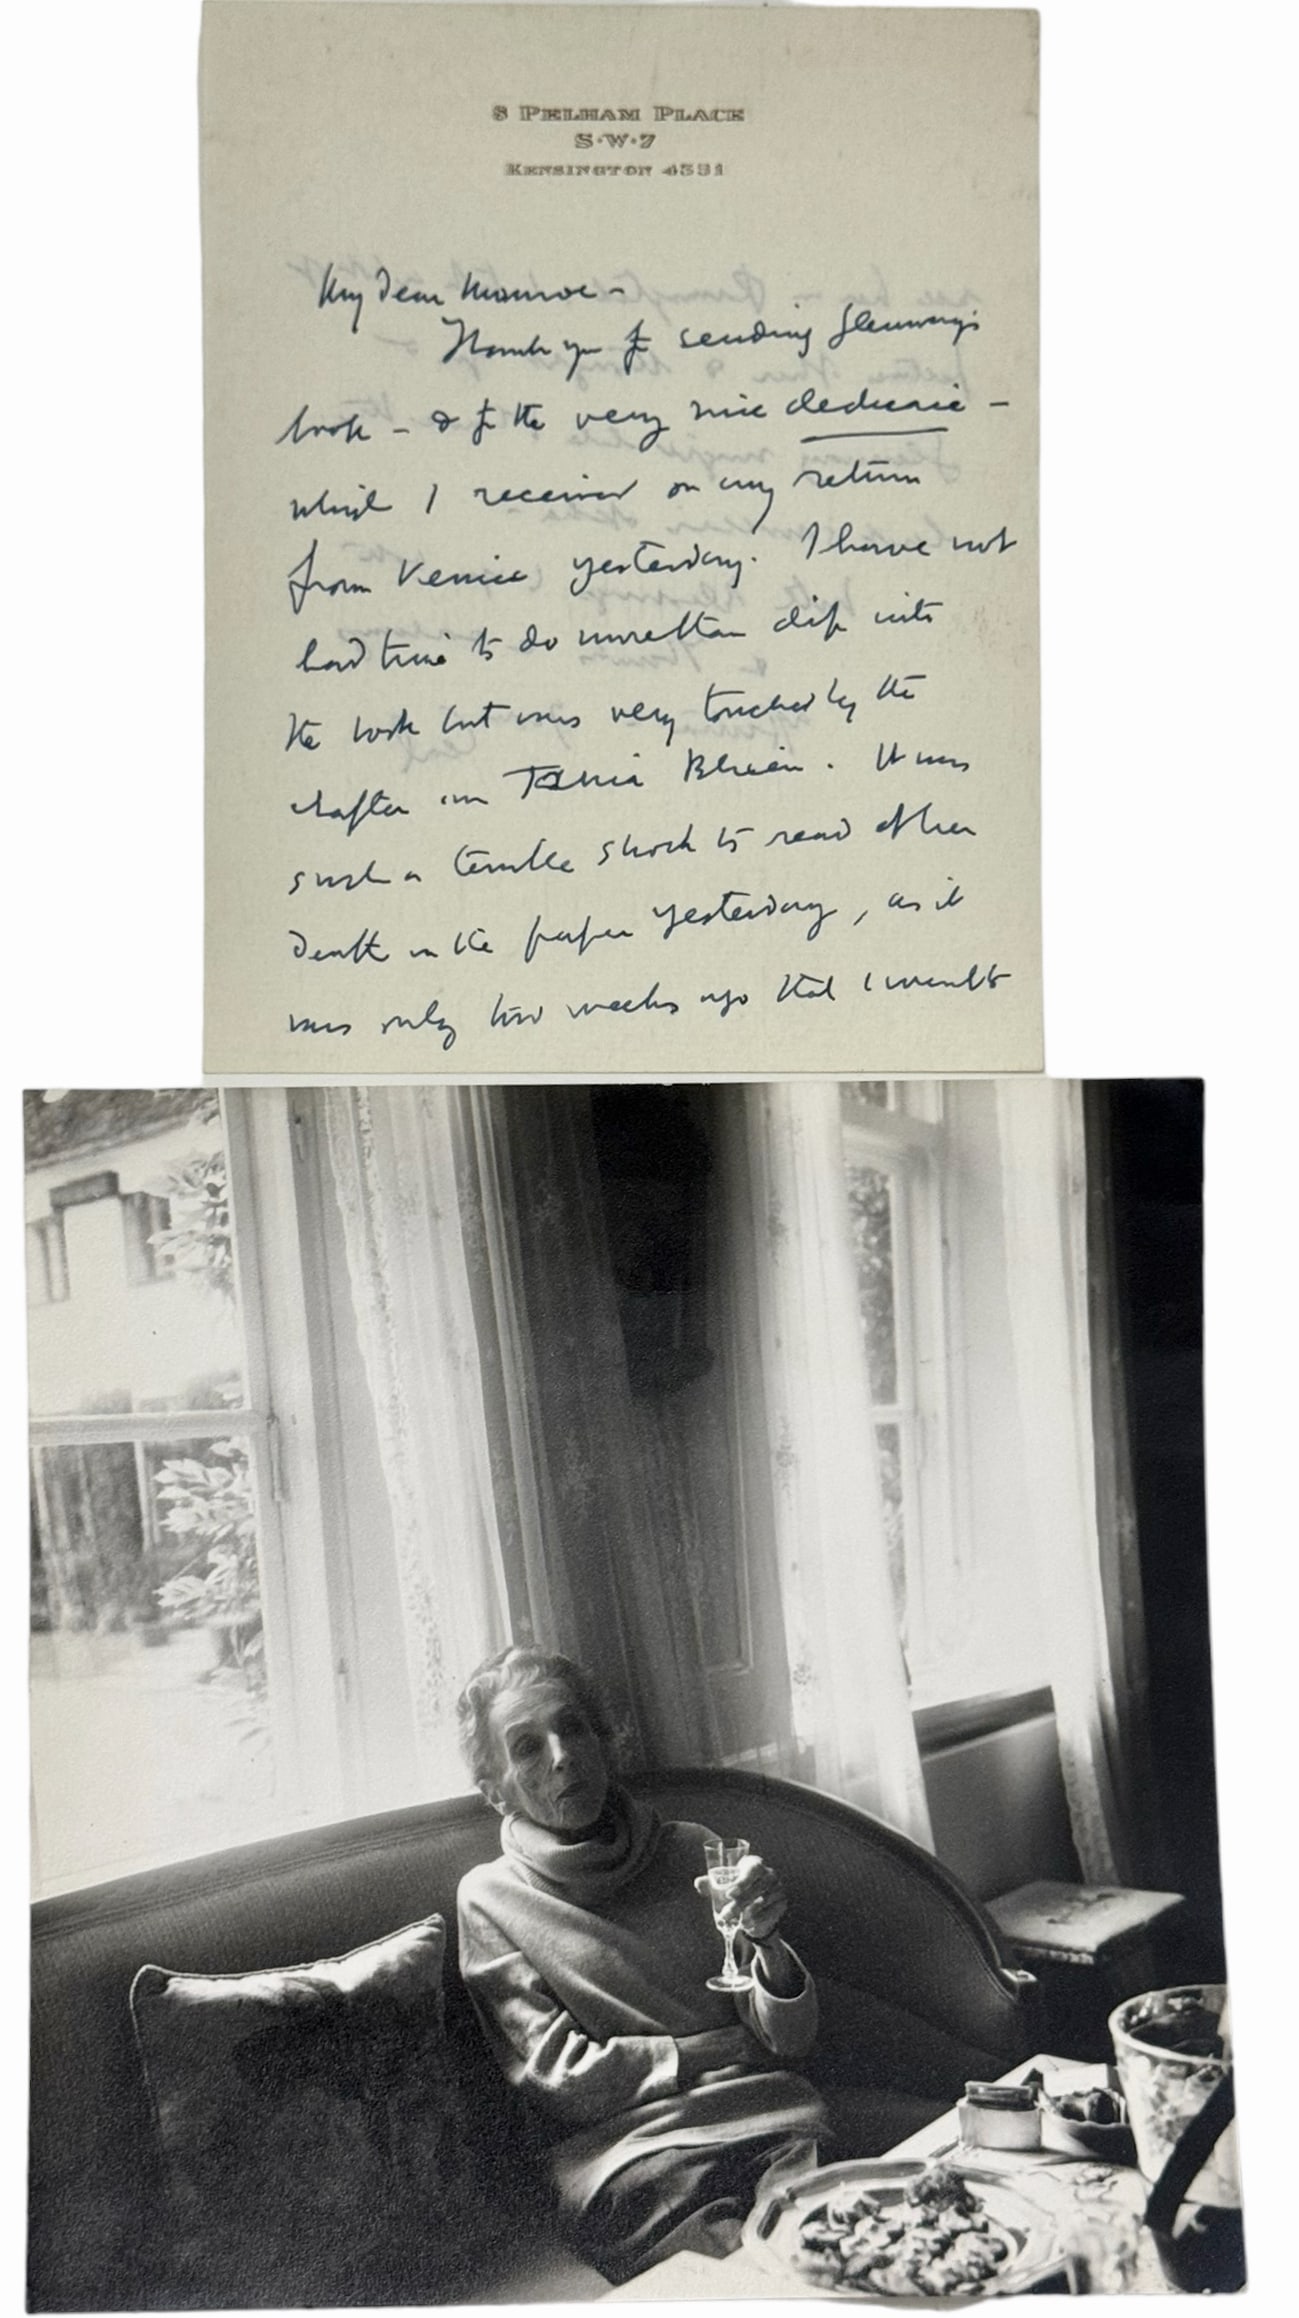 8 PELHAM PLACE
S·W·7
KENSINGTON 4331
My dear Monroe –
Thank you for sending Glenway's
book – & for the very nice dedicace –
which I received on my return
from Venice yesterday. I have not
had time to do more than dip into
the book but was very touched by the
chapter on Tania Blixen. It was
such a terrible shock to read of her
death in the paper yesterday, as it
was only two weeks ago that I went to